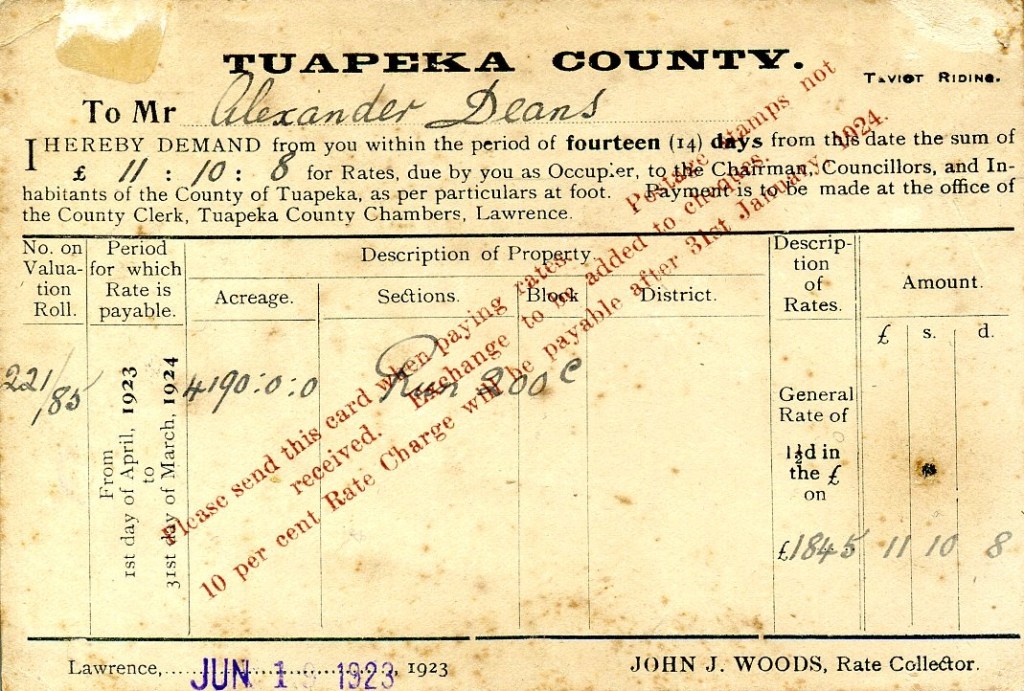 TUAPEKA COUNTY.
TAVIOT RIDING.
To Mr Alexander Deans
I HEREBY DEMAND from you within the period of fourteen (14) days from this date the sum of
£ 11 : 10 : 8 for Rates, due by you as Occupier, to the Chairman, Councillors, and In-
habitants of the County of Tuapeka, as per particulars at foot. Payment is to be made at the office of
the County Clerk, Tuapeka County Chambers, Lawrence.
No. on
Valua-
tion
Roll.
Period
for which
Rate is
payable.
Description of Property
Acreage.
Sections.
Block
District.
Descrip-
tion
of
Rates.
Amount.
£ s. d.
221/85
From
1st day of April, 1923
to
31st day of March, 1924
4190:0:0
Run 200 C
General
Rate of
1½d in
the £
on
£1845 11 10 8
Please send this card when paying rates. Postage stamps not
received. Exchange to be added to cheques.
10 per cent Rate Charge will be payable after 31st January, 1924.
Lawrence, JUN 1 1923, 1923
JOHN J. WOODS, Rate Collector.